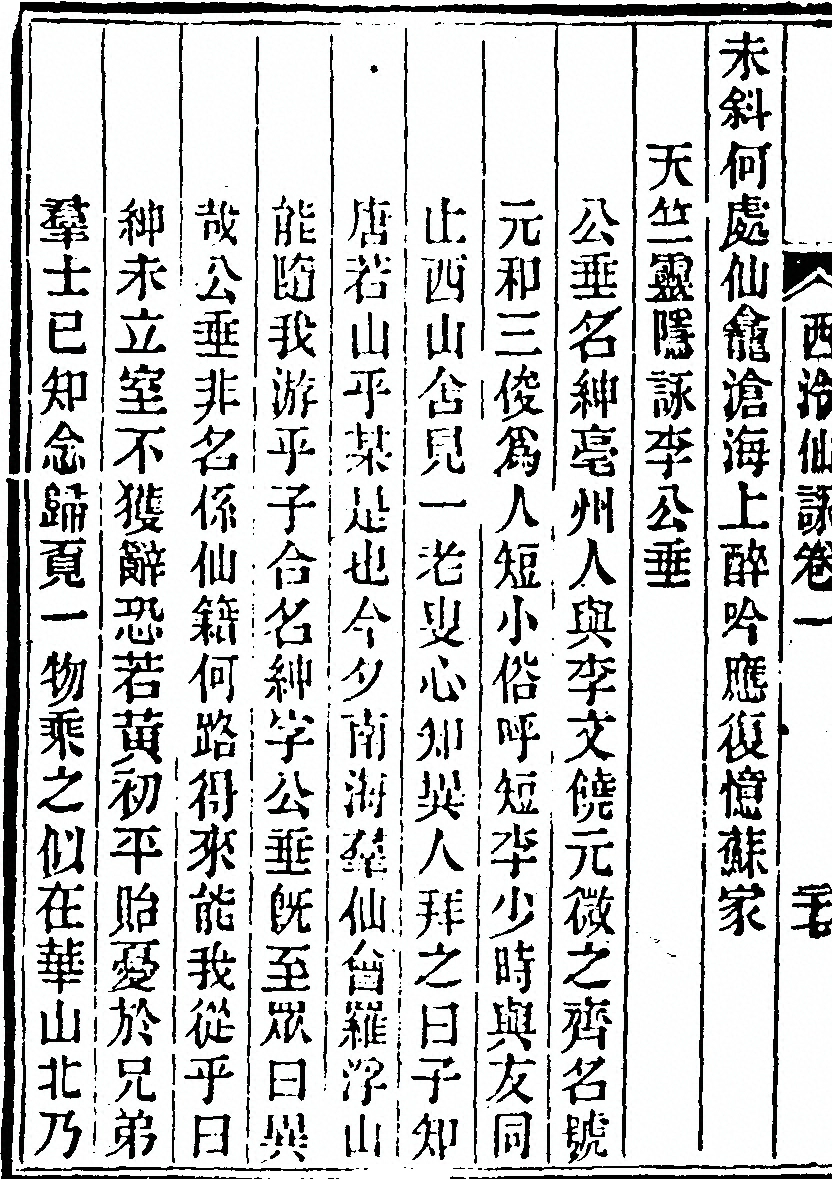 西泠仙詠卷一
未斜何處仙龕滄海上醉吟應復憶蘇家
天竺靈隱詠李公垂
公垂名紳亳州人與李文饒元微之齊名號
元和三俊爲人短小俗呼短李少時與友同
止西山舍見一老叟心知異人拜之曰子知
唐若山乎某是也今夕南海羣仙會羅浮山
能隨我游乎子合名紳字公垂旣至眾曰異
哉公垂非名係仙籍何路得來能我從乎曰
紳未立室不獲辭恐若黃初平貽憂於兄弟
羣士已知念歸覓一物乘之似在華山北乃